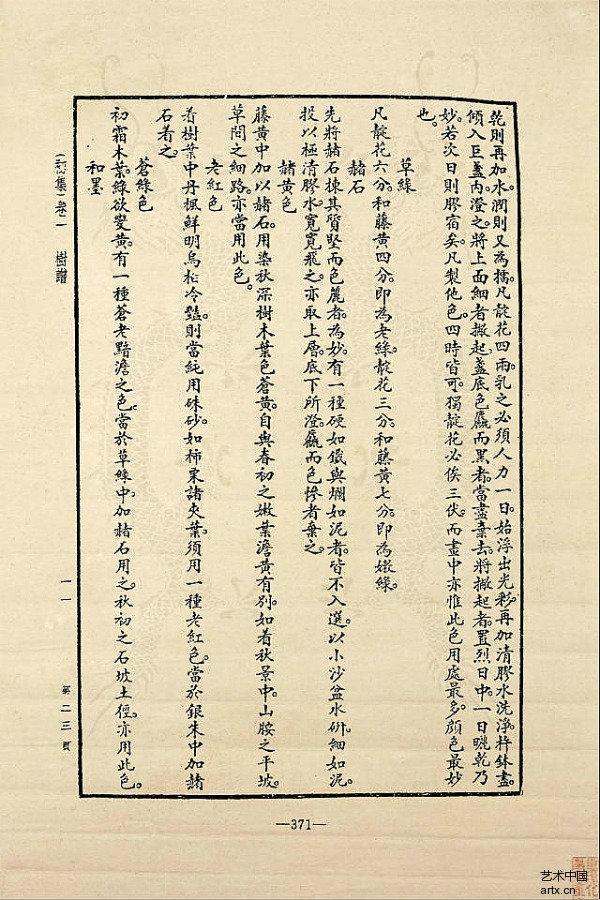 乾則再加水。潤則又為擂。凡靛花四兩。乳之必須人力一日。始浮出光彩。再加清膠水洗淨杵鉢。盡
傾入巨盞內澄之。將上面細者撇起。盞底色麤而黑者。當盡棄去。將撇起者。置烈日中。一日曬乾乃
妙。若次日則膠宿矣。凡製他色。四時皆可。獨靛花必俟三伏。而畫中亦惟此色用處最多。顏色最妙
也。
草綠
凡靛花六分。和藤黃四分。即為老綠。靛花三分。和藤黃七分。即為嫩綠。
赭石
先將赭石揀其質堅而色麗者。為妙。有一種硬如鐵與爛如泥者。皆不入選。以小沙盆水研。細如泥。
投以極清膠水。寬寬飛之。亦取上層。底下所澄麤而色慘者棄之。
赭黃色
藤黃中加以赭石。用染秋深樹木。葉色蒼黃。自與春初之嫩葉淡黃有別。如著秋景中。山腰之平坡。
草間之細路。亦當用此色。
老紅色
着樹葉中丹楓鮮明。烏桕冷豔。則當純用硃砂。如柿栗諸夾葉。須用一種老紅色。當於銀朱中加赭
石着之。
蒼綠色
初霜木葉。綠欲變黃。有一種蒼老黯澹之色。當於草綠中。加赭石用之。秋初之石坡土徑。亦用此色。
和墨
集 卷一 樹譜
一一
第二三頁
—371—
艺术中国
artx.cn